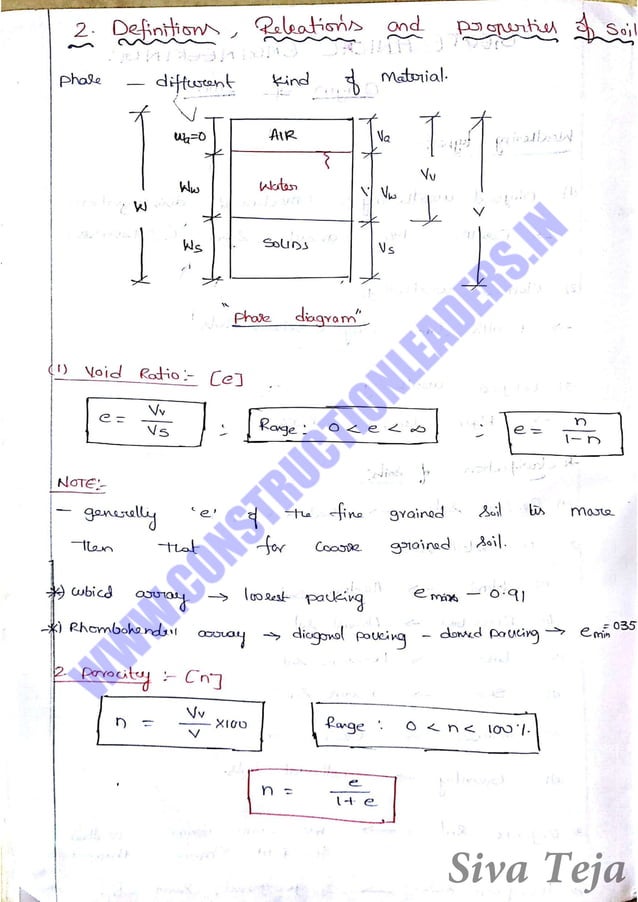 2. Definitions, Releations and properties of Soil
Phase — different kind of Material.
V
Wa=0 AIR Va
Ww Water V Vw Vv
W V
Ws SOLIDS Vs
"Phase diagram"
(1) Void Ratio:- [e]
e = Vv/Vs ; Range: 0 < e < ∞ ; e = n/1-n
NOTE:-
- generally 'e' of the fine grained soil is more
then that for coarse grained soil.
*) cubical array → loosest packing emax - 0.91
*) Rhombohendell array → diagonal packing - densed packing → emin = 035
2. Porocity :- [n]
n = Vv/V ×100 Range : 0 < n < 100%
n = e/1+e
WWW.CONSTRUCTIONLEADERS.IN
Siva Teja